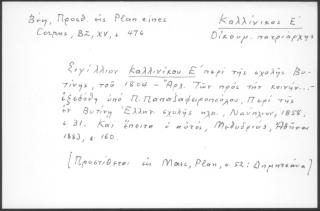 Βέη, Προσθ. εἰς Plan eines
Corpus, BZ, XV, σ 476
Καλλίνικος Ε΄
Οἰκουμ. πατριάρχης
Σιγίλλιον Καλλινίκου Ε΄ περὶ τῆς σχολῆς Βυ-
τίνης, τοῦ 1804 - "Ἀρχ. Τῶν πρὸς τὴν κοινὴν...-
ἐξεδόθη ὑπὸ Π. Παπαζαφειροπούλου, Περὶ τῆς
ἐν Βυτίνῃ Ἑλλην. σχολῆς κλπ., Ναύπλιον, 1858,
σ 31. Καὶ ἔπειτα ὁ αὐτός, Μεθυδριάς, Ἀθῆναι
1883, σ. 160.
[Προστίθεται εἰς Marc, Plan, σ. 52: Δημητσάνα]